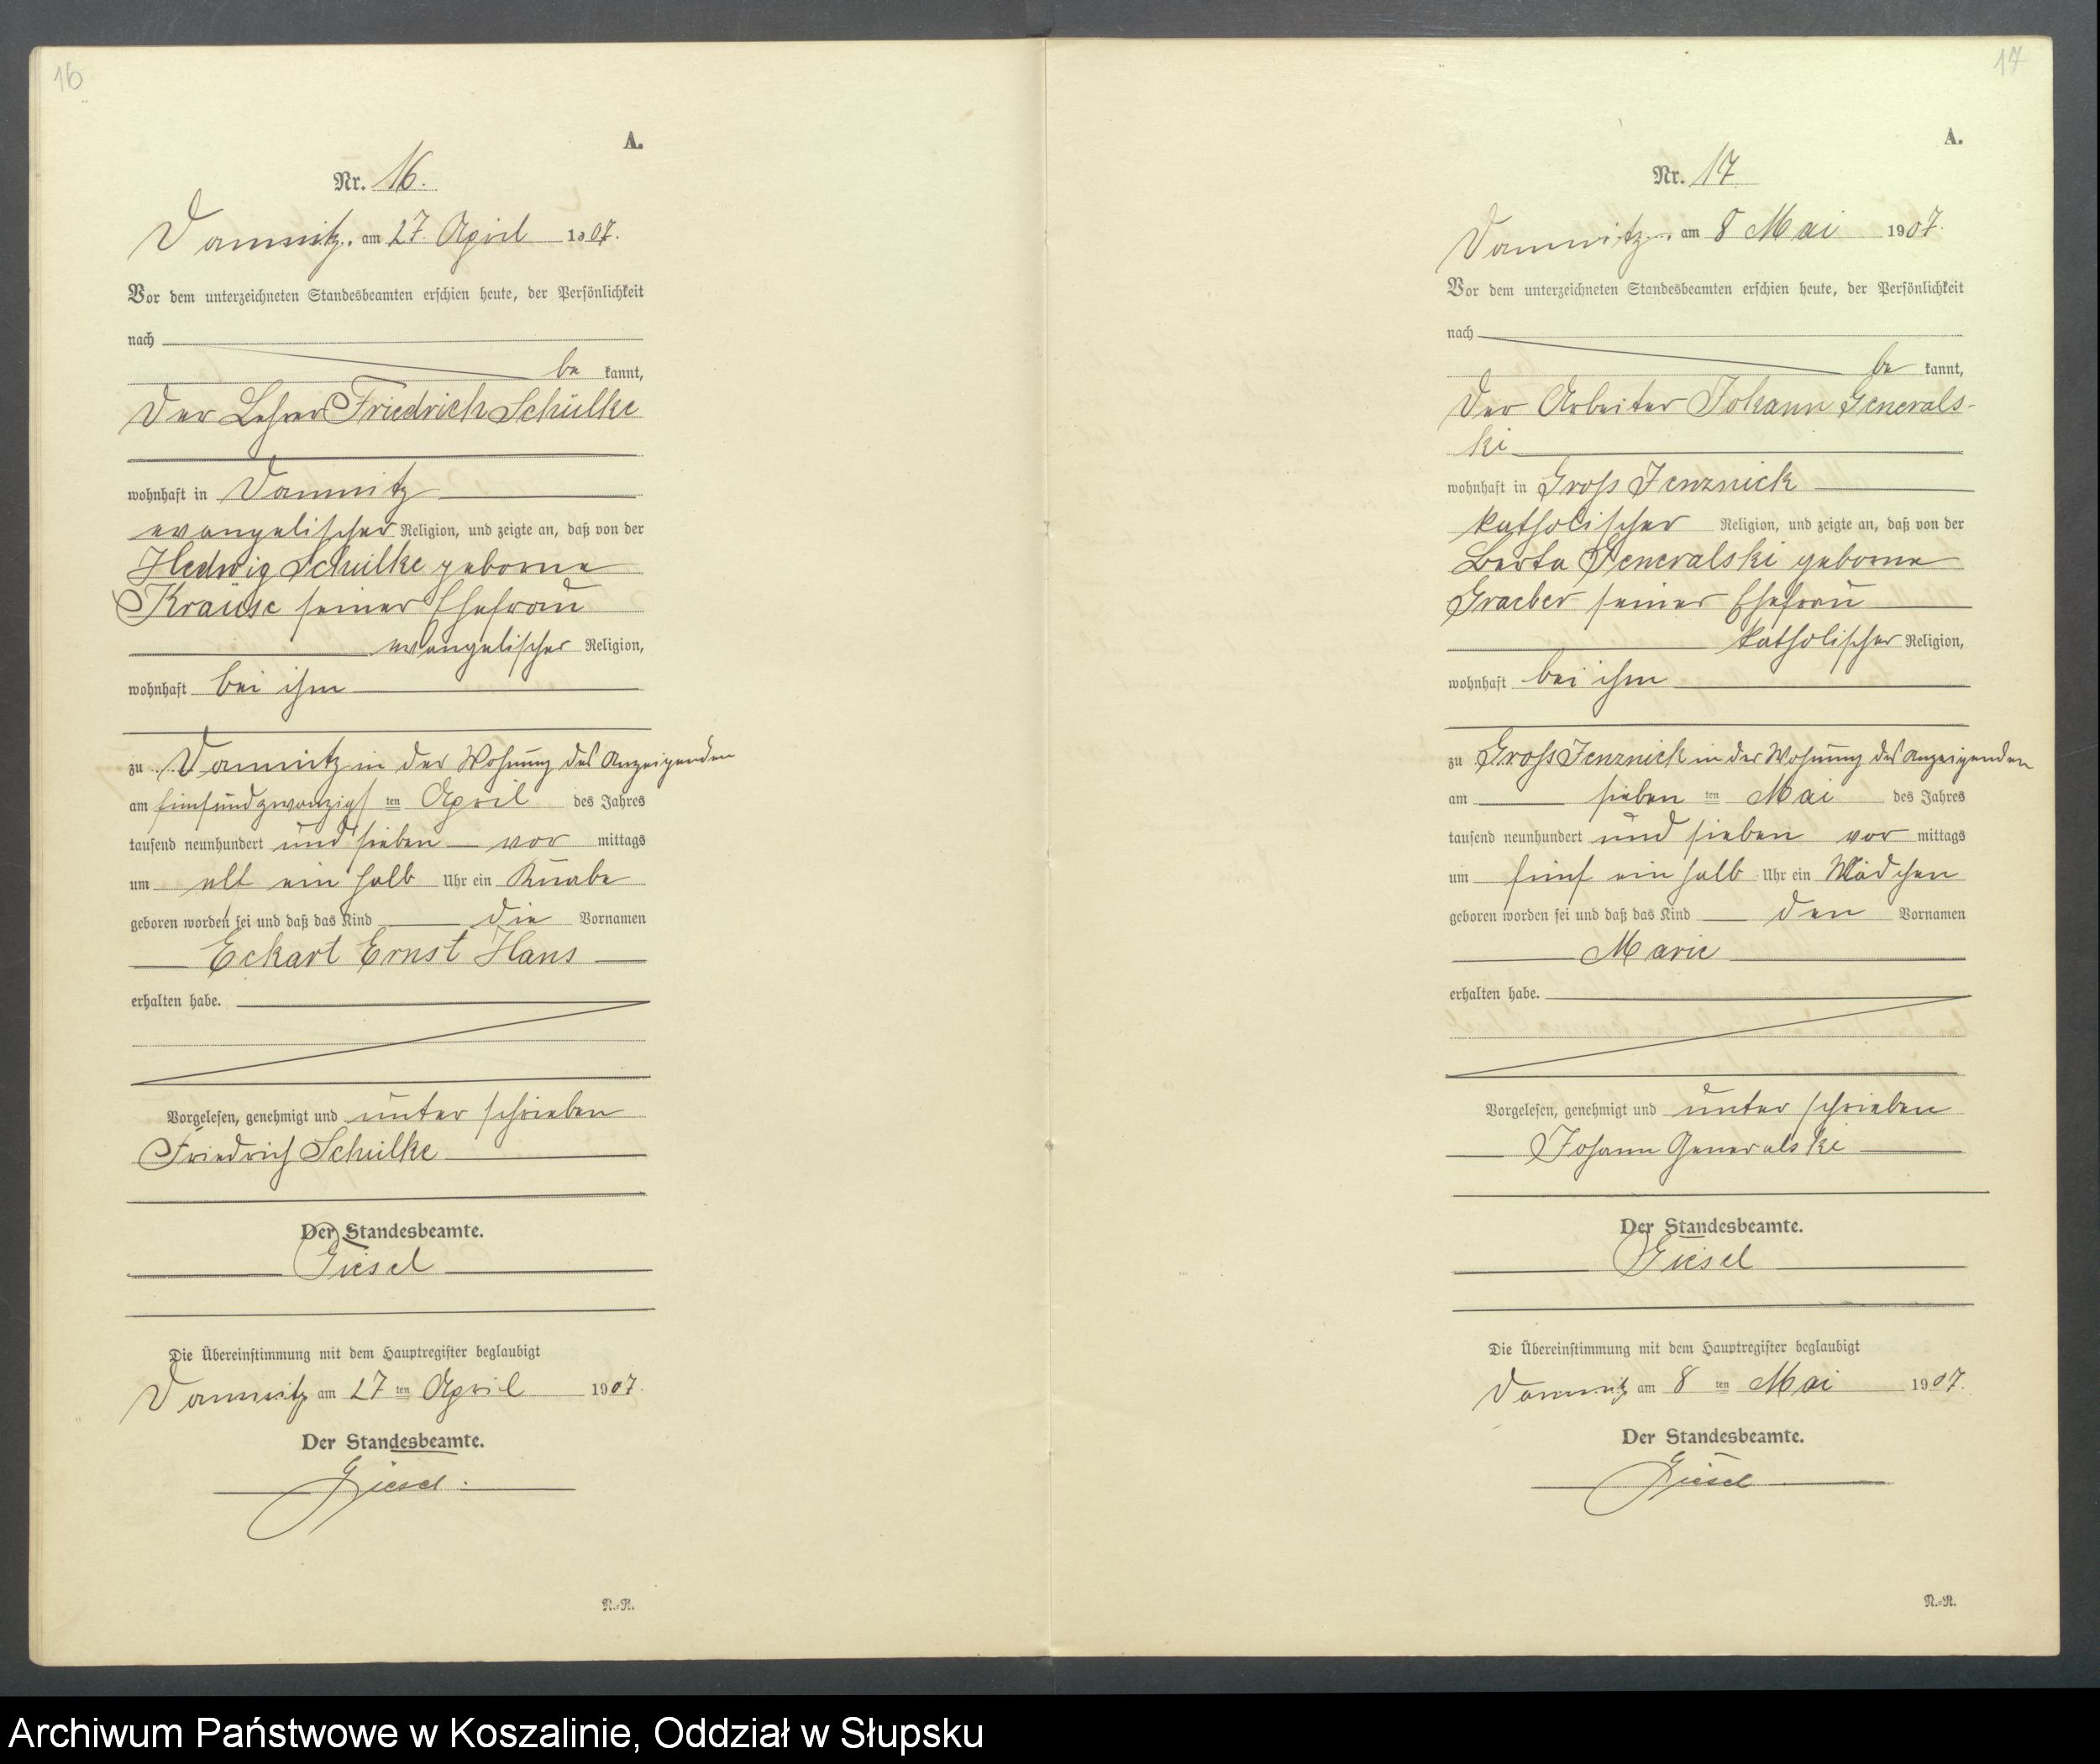 16
A.
Nr. 16.
Damnitz, am 27. April 1907.
Vor dem unterzeichneten Standesbeamten erschien heute, der Persönlichkeit
nach
be kannt,
Der Lehrer Friedrich Schülke
wohnhaft in Damnitz
evangelischer Religion, und zeigte an, daß von der
Hedwig Schülke geborne
Krause seiner Ehefrau
evangelischer Religion,
wohnhaft bei ihm
zu Damnitz in der Wohnung des Anzeigenden
am fünfundzwanzigsten April des Jahres
tausend neunhundert und sieben vor mittags
um elf ein halb Uhr ein Knabe
geboren worden sei und daß das Kind die Vornamen
Eckart Ernst Hans
erhalten habe.
Vorgelesen, genehmigt und unterschrieben
Friedrich Schülke
Der Standesbeamte.
Giesel
Die Übereinstimmung mit dem Hauptregister beglaubigt
Damnitz am 27 ten April 1907.
Der Standesbeamte.
Giesel.
N.-R.
17
A.
Nr. 17
Damnitz, am 8 Mai 1907.
Vor dem unterzeichneten Standesbeamten erschien heute, der Persönlichkeit
nach
be kannt,
Der Arbeiter Johann Generals-
ki
wohnhaft in Gross Jenznick
katholischer Religion, und zeigte an, daß von der
Berta Generalski geborne
Graeber seiner Ehefrau
katholischer Religion,
wohnhaft bei ihm
zu Gross Jenznick in der Wohnung des Anzeigenden
am sieben ten Mai des Jahres
tausend neunhundert und sieben vor mittags
um fünf ein halb Uhr ein Mädchen
geboren worden sei und daß das Kind den Vornamen
Marie
erhalten habe.
Vorgelesen, genehmigt und unterschrieben
Johann Generalski
Der Standesbeamte.
Giesel
Die Übereinstimmung mit dem Hauptregister beglaubigt
Damnitz am 8 ten Mai 1907.
Der Standesbeamte.
Giesel
N.-R.
Archiwum Państwowe w Koszalinie, Oddział w Słupsku